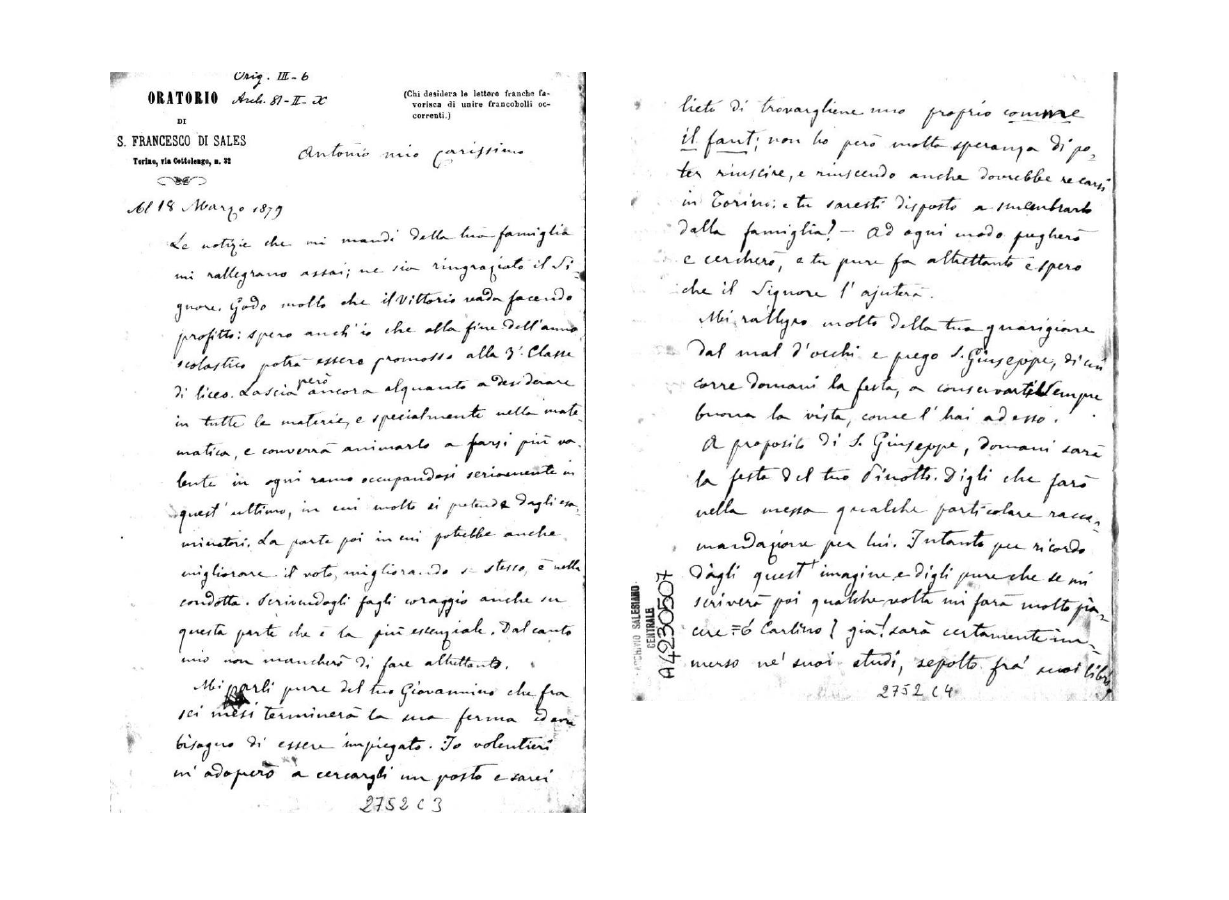 Orig. III-6
ORATORIO Arch. 81-II-X
DI
S. FRANCESCO DI SALES
Torino, via Cottolengo, n. 32
(Chi desidera le lettere franche fa-
vorisca di unire francobolli oc-
correnti.)
Antonio mio carissimo
Al 18 Marzo 1879
Le notizie che mi mandi della tua famiglia
mi rallegrano assai; ne sia ringraziato il Si-
gnore. Godo molto che il Vittorio vada facendo
profitto: spero anch'io che alla fine dell'anno
scolastico potrà essere promosso alla 3ª Classe
di liceo. Lascia però ancora alquanto a desiderare
in tutte le materie, e specialmente nella mate
matica, e converrà animarlo a farsi più va-
lente in ogni ramo occupandosi seriamente in
quest' ultimo, in cui molto si pretende dagli esa-
minatori. La parte poi in cui potrebbe anche
migliorare il voto, migliorando se stesso, è nella
condotta. Scrivendogli fagli coraggio anche su
questa parte che è la più essenziale. Dal canto
mio non mancherò di fare altrettanto.
Mi parli pure del tuo Giovannino che fra
sei mesi terminerà la sua ferma ed avrà
bisogno di essere impiegato. Io volentieri
m' adopero a cercargli un posto e sarei
2752 C 3
lieto di trovargliene uno proprio comme
il faut; non ho però molta speranza di po-
ter riuscire, e riuscendo anche dovrebbe recarsi
in Torino: e tu saresti disposto a smembrarlo
dalla famiglia? — Ad ogni modo pregherò
e cercherò, e tu pure fa altrettanto e spero
che il Signore l' ajuterà.
Mi rallegro molto della tua guarigione
dal mal d'occhi e prego S. Giuseppe, di cui
corre domani la festa, a conservarti sempre
buona la vista, come l' hai adesso.
A proposito di S. Giuseppe, domani sarà
la festa del tuo Pinotto. Digli che farò
nella messa qualche particolare racco-
mandazione per lui. Intanto per ricordo
dagli quest' imagine e digli pure che se mi
scriverà poi qualche volta mi farà molto pia-
cere = È Carlino? già! sarà certamente im-
merso ne' suoi studi, sepolto fra' suoi libri
2752 C 4
ARCHIVIO SALESIANO
CENTRALE
A4230507